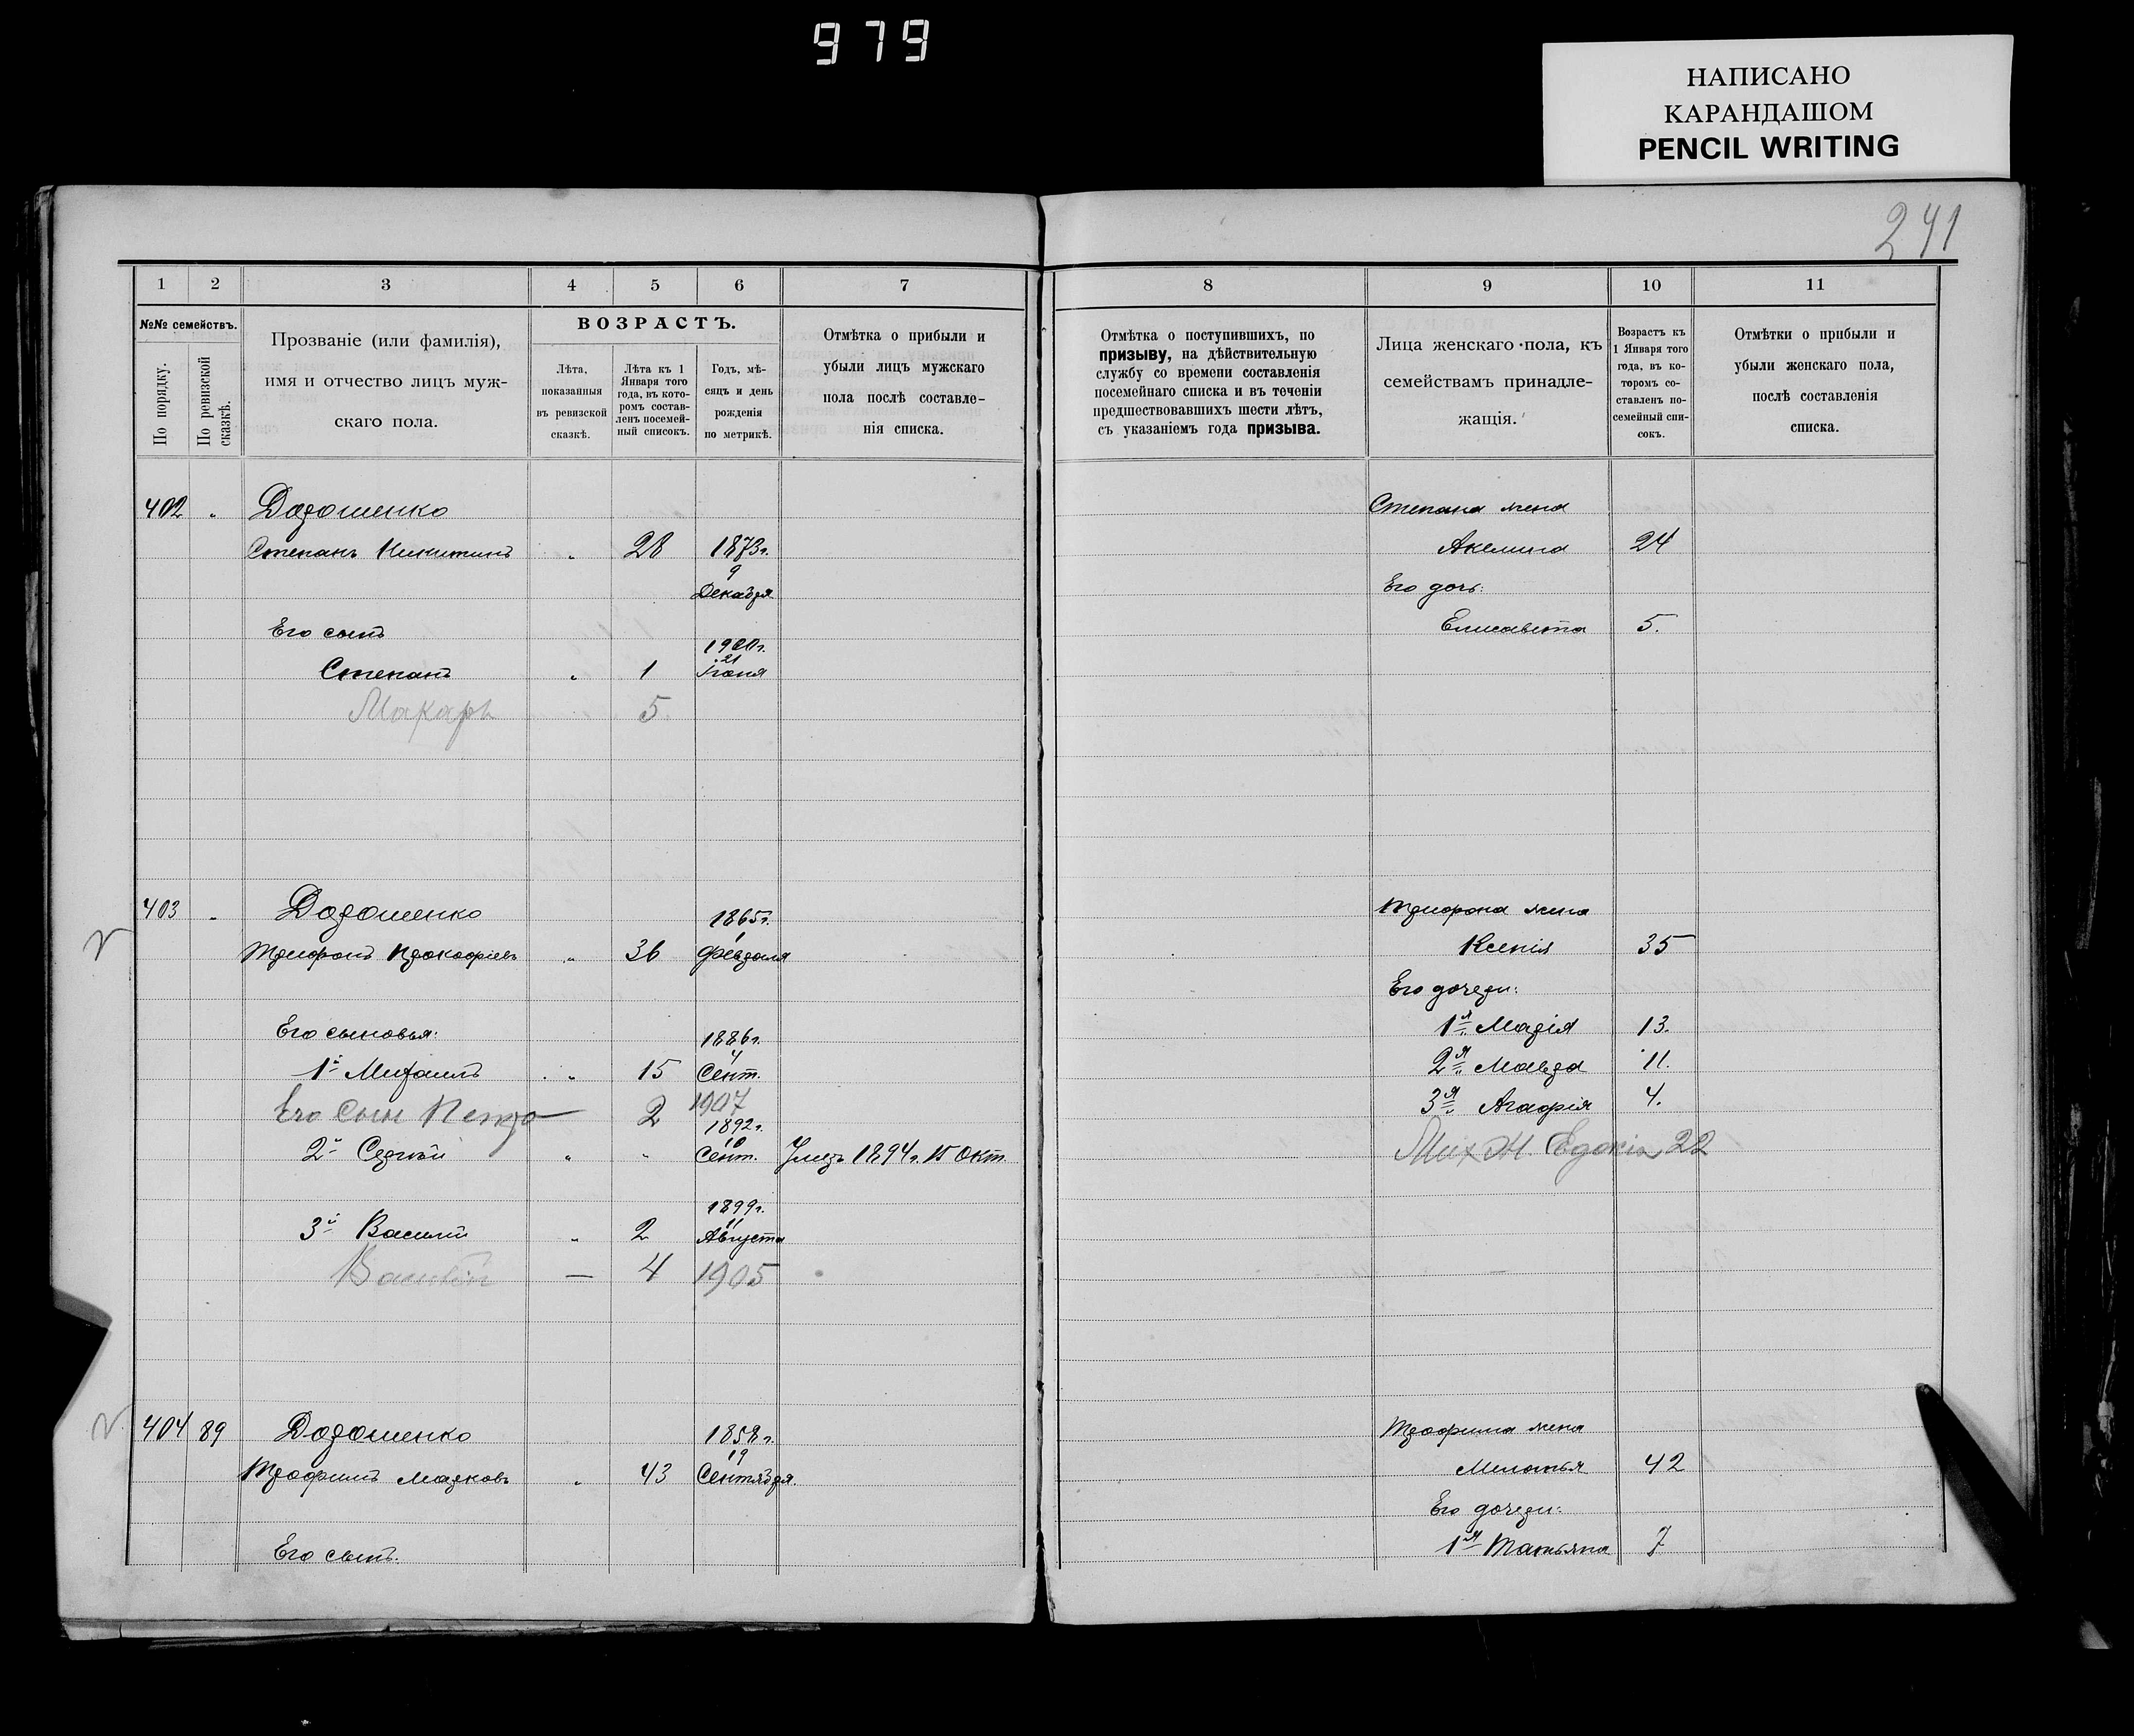 979
НАПИСАНО
КАРАНДАШОМ
PENCIL WRITING
241
1 2 3 4 5 6 7 8 9 10 11
№№ семействъ.
По порядку.
По ревизской сказкѣ.
Прозваніе (или фамилія),
имя и отчество лицъ муж-
скаго пола.
ВОЗРАСТЪ.
Лѣта,
показанныя
въ ревизской
сказкѣ.
Лѣта къ 1
Января того
года, въ кото-
ромъ состав-
ленъ посемей-
ный списокъ.
Годъ, мѣ-
сяцъ и день
рожденія
по метрикѣ.
Отмѣтка о прибыли и
убыли лицъ мужскаго
пола послѣ составле-
нія списка.
Отмѣтка о поступившихъ, по
призыву, на дѣйствительную
службу со времени составленія
посемейнаго списка и въ теченіи
предшествовавшихъ шести лѣтъ,
съ указаніемъ года призыва.
Лица женскаго пола, къ
семействамъ принадле-
жащія.
Возрастъ къ
1 Января того
года, въ ко-
торомъ со-
ставленъ по-
семейный спи-
сокъ.
Отмѣтки о прибыли и
убыли женскаго пола,
послѣ составленія
списка.
402 „ Дорошенко
Степанъ Никитинъ „ 28 1873 г.
9
Декабря
Его сынъ
1900 г.
21
Степанъ „ 1 Іюня
Макаръ 5
Степана жена
Акелина 24
Его дочь:
Елисавета 5.
403 „ Дорошенко 1865 г.
1
Трифонъ Прокофіевъ „ 36 Февраля
Его сыновья: 1886 г.
4
1й Михаилъ „ 15 Сент.
Его сын Петро 2 1907
1892 г.
10
2й Сергѣй „ „ Сент. Умеръ 1894 г. 15 Окт.
1899 г.
11
3й Василій „ 2 Августа
— 4 1905
Трифона жена
Ксенія 35
Его дочери:
1я Марія 13.
2я Мавра 11.
3я Агафія 4.
Мих Ж. Евдокія 22
404 89 Дорошенко 1858 г.
19
Трофимъ Марковъ „ 43 Сентября.
Его сынъ.
Трофима жена
Мелотья 42
Его дочери:
1я Татьяна 7